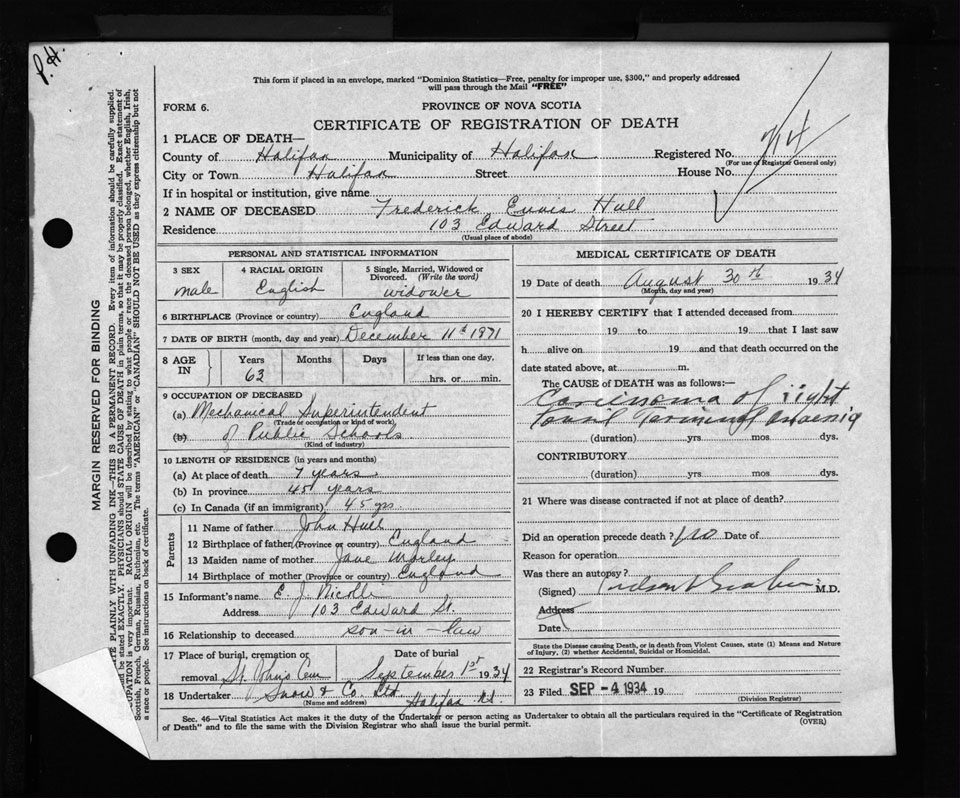 P.H.
This form if placed in an envelope, marked "Dominion Statistics—Free, penalty for improper use, $300," and properly addressed
will pass through the Mail "FREE"
FORM 6.
PROVINCE OF NOVA SCOTIA
CERTIFICATE OF REGISTRATION OF DEATH
1 PLACE OF DEATH—
County of Halifax Municipality of Halifax Registered No. 714
(For use of Registrar General only)
City or Town Halifax Street House No.
If in hospital or institution, give name
2 NAME OF DECEASED Frederick Hull
Residence 103 Edward Street
(Usual place of abode)
PERSONAL AND STATISTICAL INFORMATION
3 SEX
male
4 RACIAL ORIGIN
English
5 Single, Married, Widowed or
Divorced. (Write the word)
widower
6 BIRTHPLACE (Province or country) England
7 DATE OF BIRTH (month, day and year) December 11th 1871
8 AGE IN
Years Months Days If less than one day,
63 hrs. or min.
9 OCCUPATION OF DECEASED
(a) Mechanical Superintendent
(Trade or occupation or kind of work)
(b) of Public Schools
(Kind of industry)
10 LENGTH OF RESIDENCE (in years and months)
(a) At place of death 7 years
(b) In province 45 years
(c) In Canada (if an immigrant) 45 yrs.
Parents
11 Name of father John Hull
12 Birthplace of father (Province or country) England
13 Maiden name of mother Jane Morley
14 Birthplace of mother (Province or country) England
15 Informant's name E. J. Nicolle
Address 103 Edward St.
16 Relationship to deceased son-in-law
17 Place of burial, cremation or Date of burial
removal St. John's Cem September 1st 1934
18 Undertaker Snow & Co. Ltd.
(Name and address) Halifax
MEDICAL CERTIFICATE OF DEATH
19 Date of death August 30th 1934
(Month, day and year)
20 I HEREBY CERTIFY that I attended deceased from
19 to 19 that I last saw
h alive on 19 and that death occurred on the
date stated above, at m.
The CAUSE of DEATH was as follows:—
Carcinoma of right
tonsil Terminal
(duration) yrs mos dys.
CONTRIBUTORY
(duration) yrs mos dys.
21 Where was disease contracted if not at place of death?
Did an operation precede death? No Date of
Reason for operation
Was there an autopsy?
(Signed) M.D.
Address
Date
State the Disease causing Death, or in death from Violent Causes, state (1) Means and Nature
of Injury, (2) whether Accidental, Suicidal or Homicidal.
22 Registrar's Record Number
23 Filed SEP -4 1934 19
(Division Registrar)
Sec. 46—Vital Statistics Act makes it the duty of the Undertaker or person acting as Undertaker to obtain all the particulars required in the "Certificate of Registration
of Death" and to file the same with the Division Registrar who shall issue the burial permit.
(OVER)
MARGIN RESERVED FOR BINDING
PLAINLY WITH UNFADING INK—THIS IS A PERMANENT RECORD. Every item of information should be carefully supplied.
be stated EXACTLY. PHYSICIANS should STATE CAUSE OF DEATH in plain terms, so that it may be properly classified. Exact statement of
is very important. RACIAL ORIGIN will be described by stating to what people or race the deceased person belonged, whether English, Irish,
Scottish, French, German, Russian, Ruthenian, etc. The terms "AMERICAN" or "CANADIAN" SHOULD NOT BE USED as they express citizenship but not
a race or people. See instructions on back of certificate.